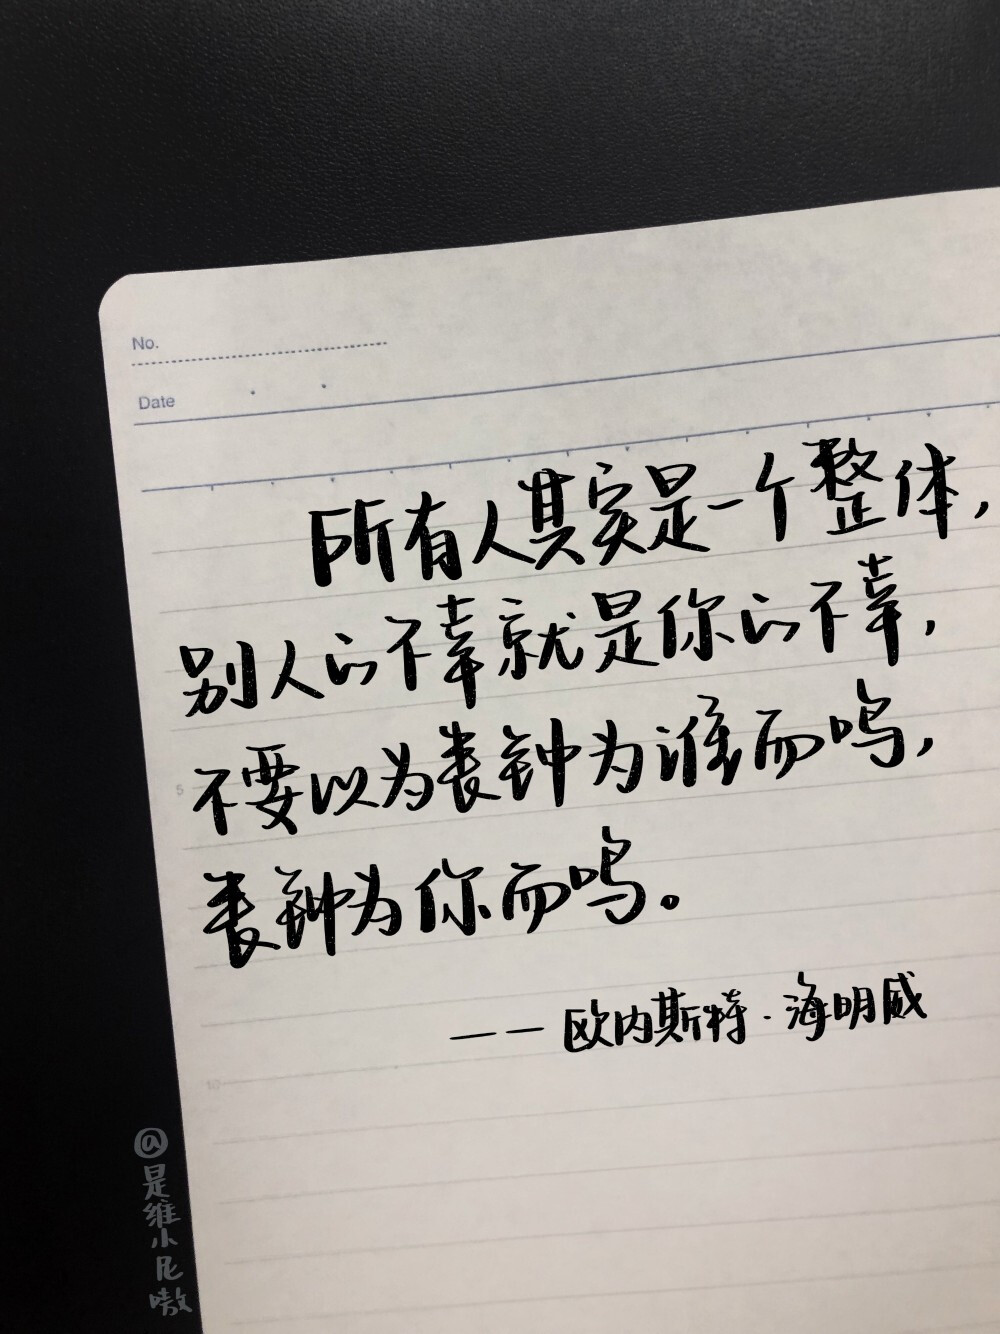 No.
Date
所有人其实是一个整体，
别人的不幸就是你的不幸，
不要以为丧钟为谁而鸣，
5
丧钟为你而鸣。
——欧内斯特·海明威
10
@是维小尼嗷